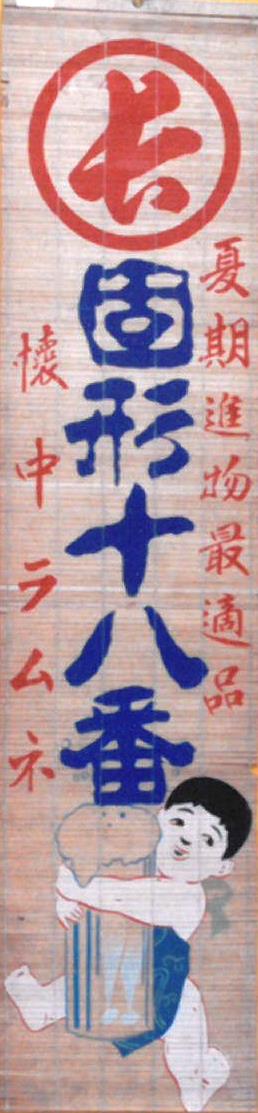 長
夏期進物最適品
固形十八番
懐中ラムネ